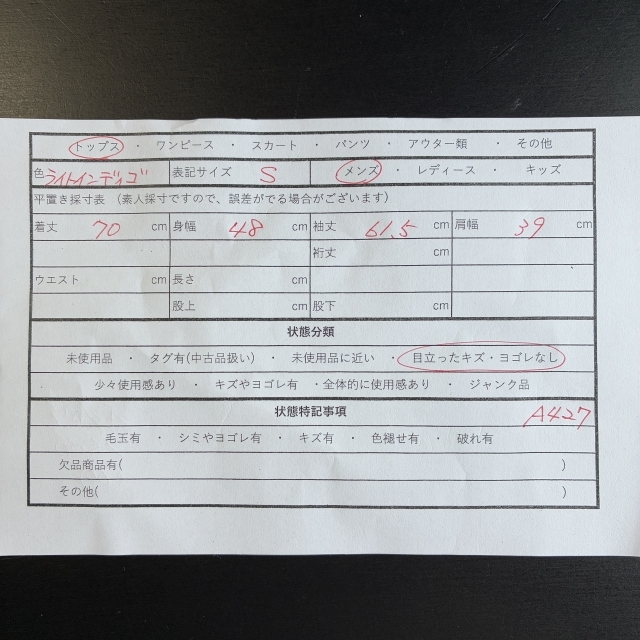 トップス ・ ワンピース ・ スカート ・ パンツ ・ アウター類 ・ その他
色 ライトインディゴ 表記サイズ S メンズ ・ レディース ・ キッズ
平置き採寸表 （素人採寸ですので、誤差がでる場合がございます）
着丈 70 cm 身幅 48 cm 袖丈 61.5 cm 肩幅 39 cm
裄丈 cm
ウエスト cm 長さ cm
股上 cm 股下 cm
状態分類
未使用品 ・ タグ有(中古品扱い) ・ 未使用品に近い ・ 目立ったキズ・ヨゴレなし
・ 少々使用感あり ・ キズやヨゴレ有 ・全体的に使用感あり ・ ジャンク品
状態特記事項 A427
毛玉有 ・ シミやヨゴレ有 ・ キズ有 ・ 色褪せ有 ・ 破れ有
欠品商品有( )
その他( )